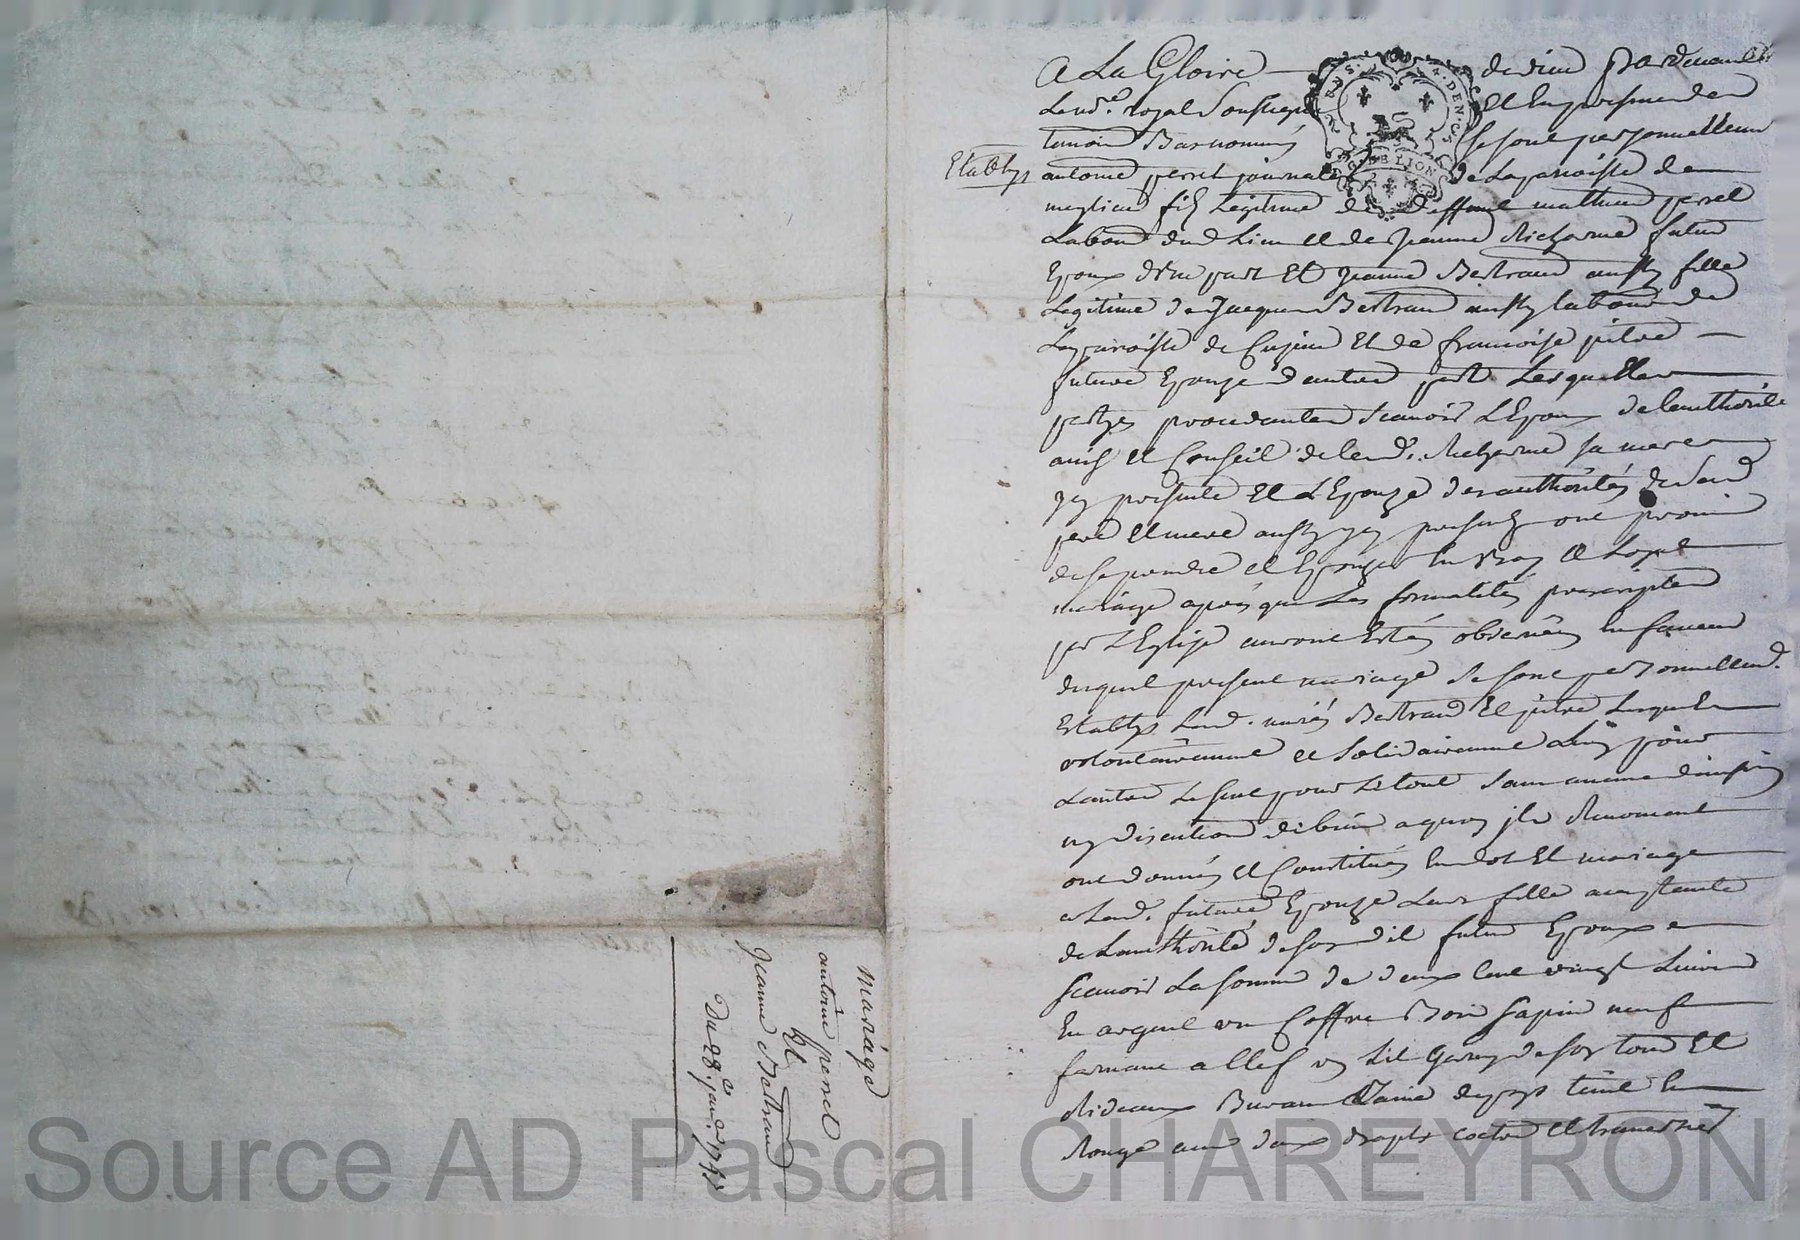 A La Gloire de dieu Pardevant
Le nore. royal Soussigné Et En presence des
temoins Bas nommés se sont personnellem
Establys antoine perret journalier de La paroisse de
meylieu fils Legitime de deffunt mathieu perret
Labour dud Lieu et de Jeanne Richarme futur
Epoux d'Une part Et Jeanne Bertrand aussy fille
Legitime de Jacques Bertrand aussy laboureur de
La paroisse de Cuzieu Et de francoise pitre
future Epouze d'autre part Lesquelles
partyes procedantes scauoir L'Epoux de lauthorité
auis et Conseil de lad. Richarme sa mere
jcy presente Et L'Epouze des authorités de sesd
pere et mere aussy jcy presents ont promis
de se prendre et Epouzer En vray et Loyal
mariage apres que Les formalités prescriptes
par L'Eglise auront Estés observées En faueur
duquel present mariage se sont personnellemt.
Establys Lesd. mariés Bertrand Et pitre Lesquels
volontairement et solidairement L'un pour
L'autre Le seul pour Le tout sans aucune diuision
ny discution de biens a quoy jls Renoncent
ont donnés et Constitués En dot Et mariage
a Lad. future Epouze Leur fille acceptante
de Lauthorité de sondit futur Epoux
scauoir La somme de deux Cent vingt Liures
En argent un Coffre Bois sapin neuf
fermant a Clef un Lit garny de son tour Et
Rideaux Bureau Laine du pays teint En
Rouge auec deux draps
mariage
antoine perret
Et
Jeanne Bertrand
Du 28e. januer 174
G. DE LION
Source AD Pascal CHAREYRON